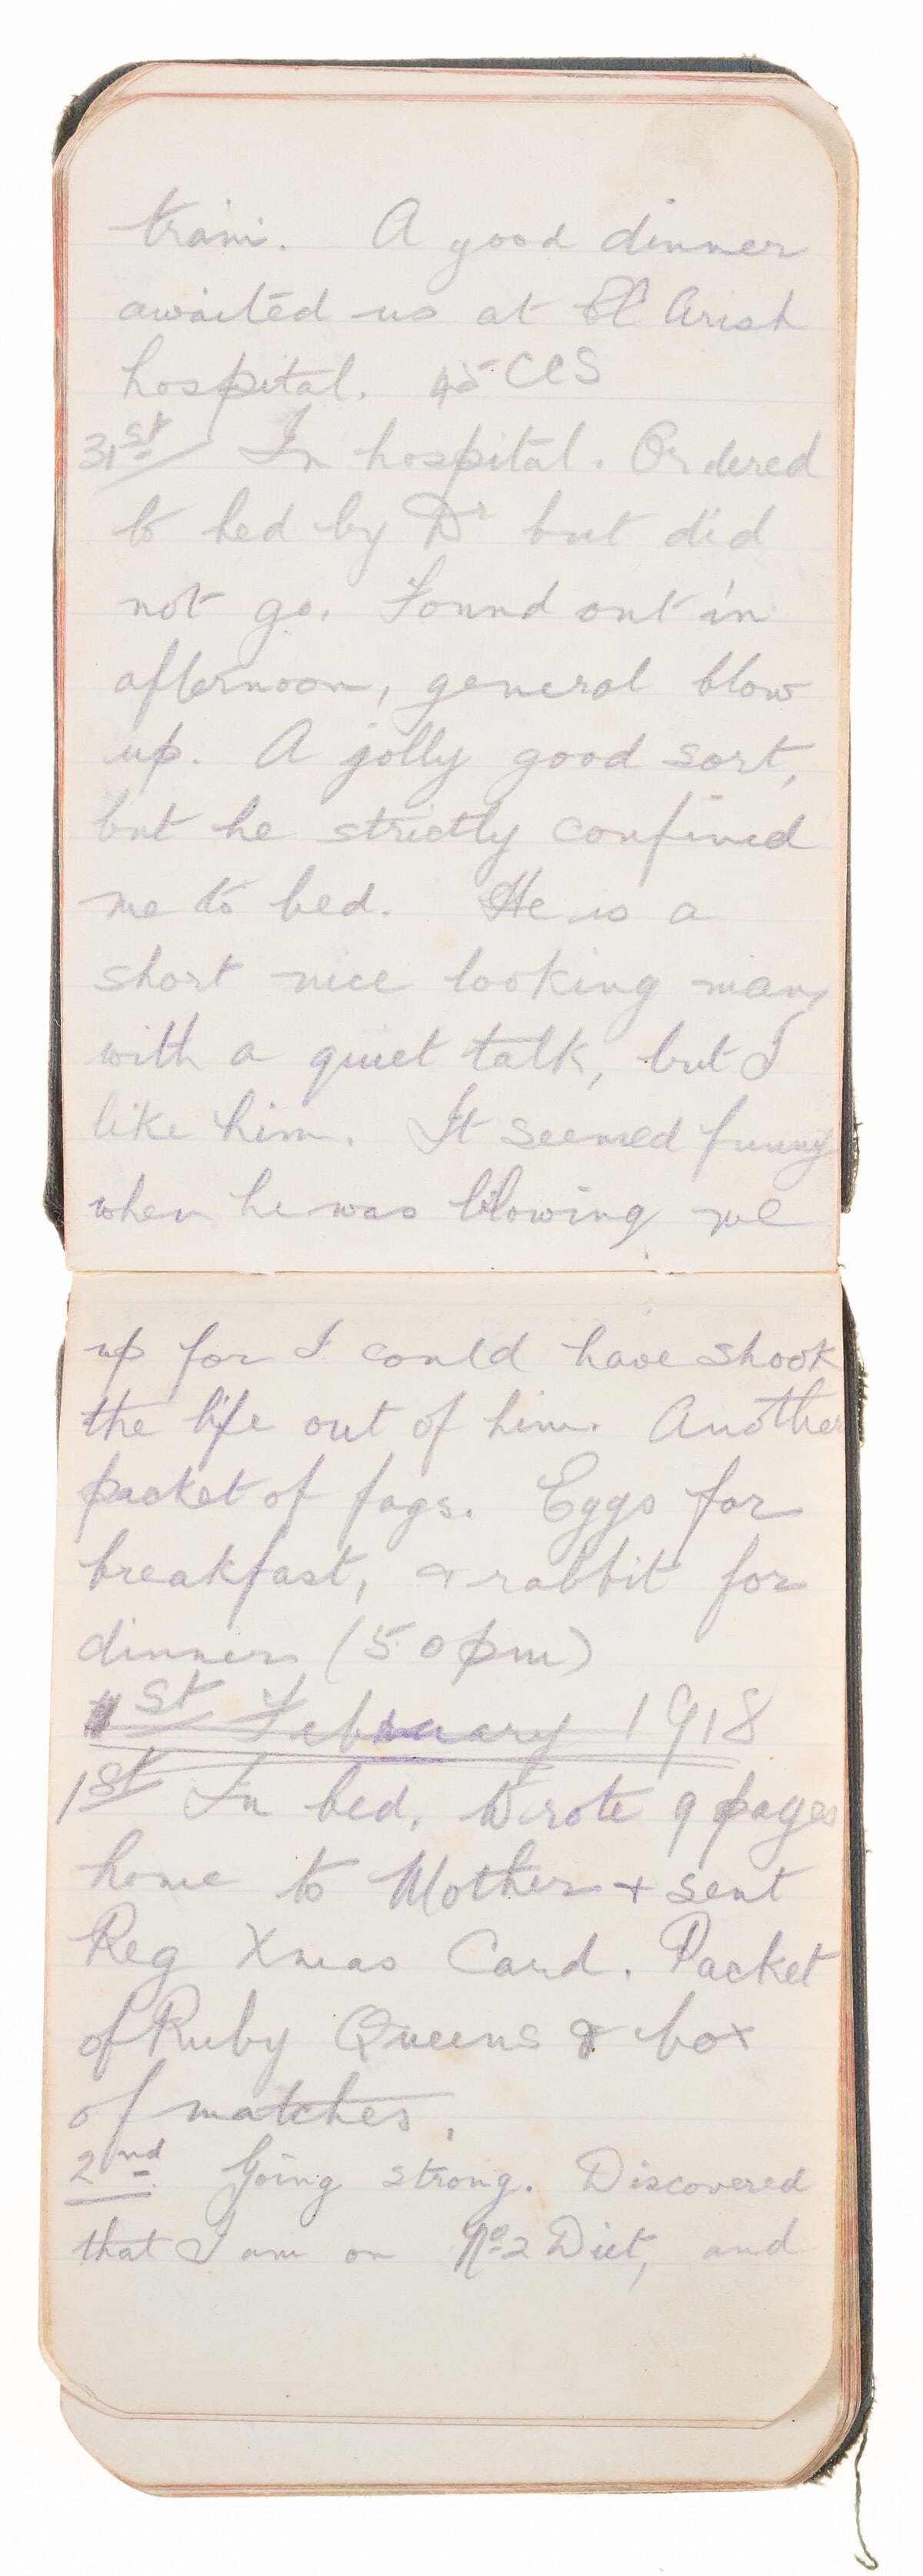 train. A good dinner
awaited us at El Arish
hospital. 45 CCS
31st/ In hospital. Ordered
to bed by Dr but did
not go. Found out in
afternoon, general blow
up. A jolly good sort,
but he strictly confined
me to bed. He is a
short nice looking man,
with a quiet talk, but I
like him. It seemed funny
when he was blowing me
up for I could have shook
the life out of him. Another
packet of fags. Eggs for
breakfast, & rabbit for
dinner (5.0 pm)
1st February 1918
1st In bed. Wrote 9 pages
home to Mother + sent
Reg Xmas Card. Packet
of Ruby Queens & box
of matches.
2nd. Going strong. Discovered
that I am on No 2 Diet, and